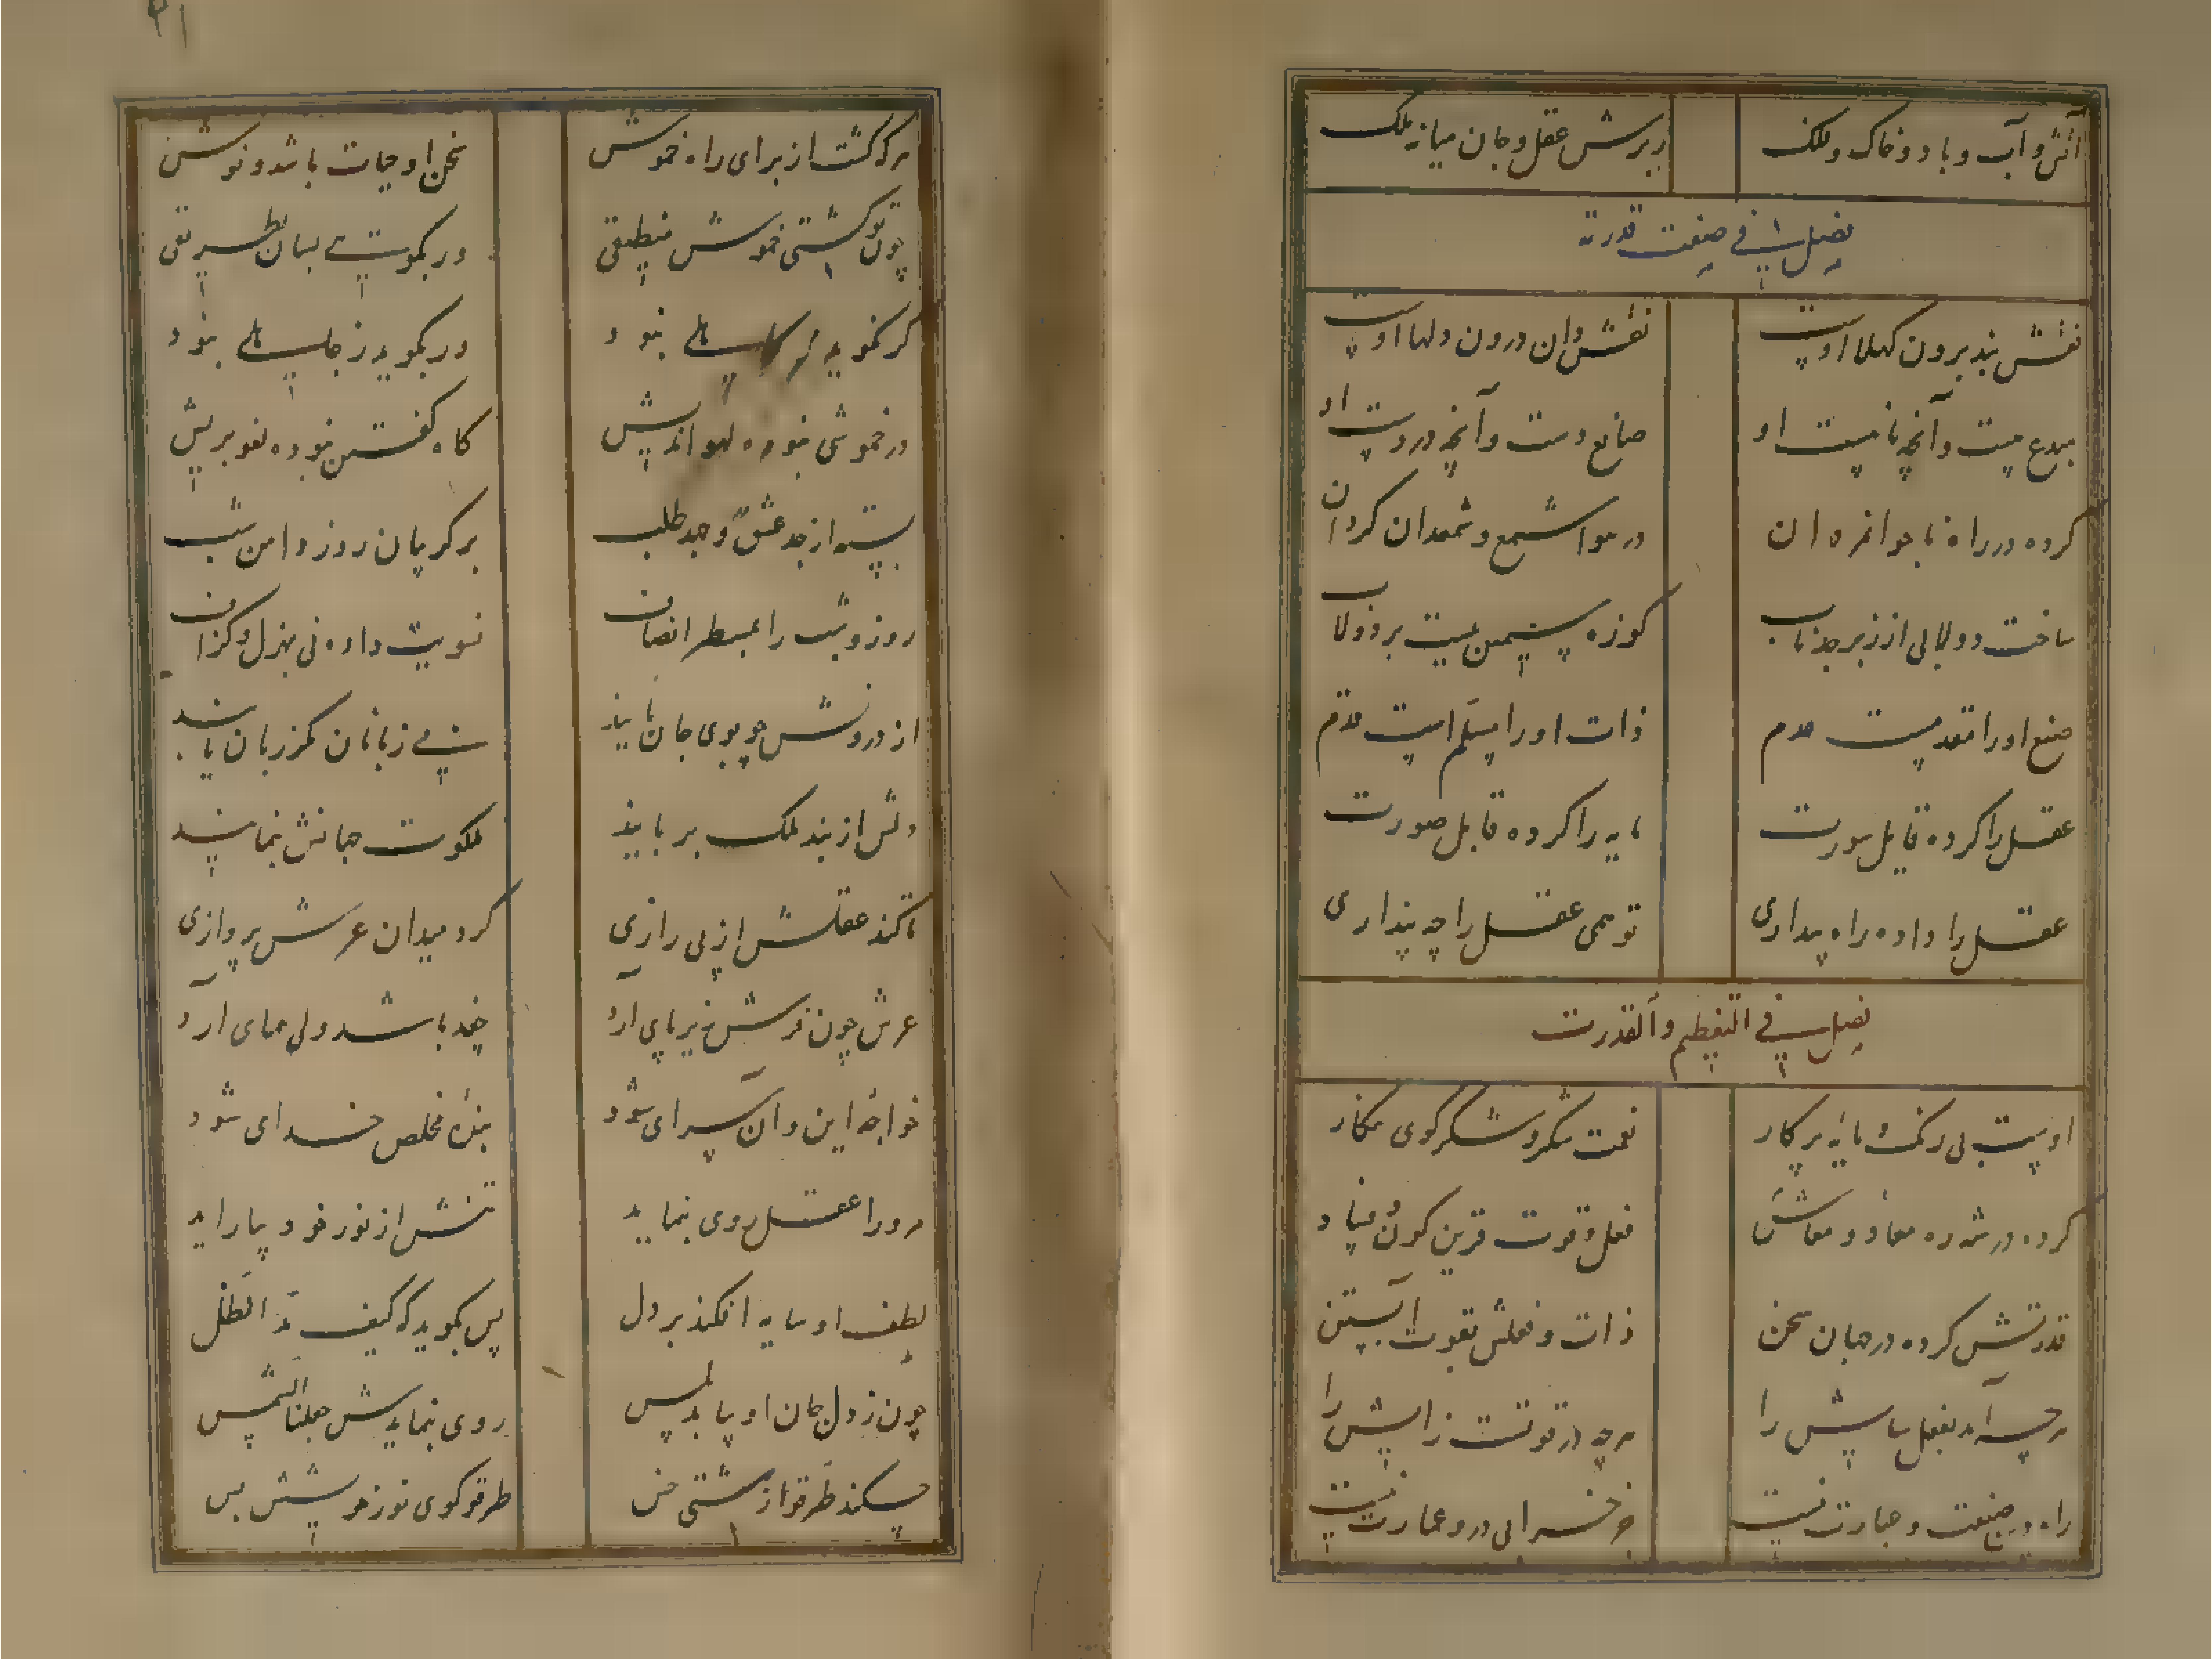 آتش و آب و باد و خاک و فلک	زبرش عقل و جان میانه ملک
فصل فی صنعت قدرته
نقش بند برون کلها اوست	نقش دان درون دلها اوست
مبدع هست و آنچه ناهست او	صانع دست و آنچه در دست او
کرده در راه ناجوانمردان	در هوا شمع و شمعدان کردان
ساخت دولابی از زبرجد ناب	کوزه سیمین ببست بر دولاب
صنع او را مقدمست عدم	ذات او را مسلم است قدم
عقل را کرده قابل سورت	مایه را کرده قابل صورت
عقل را داده راه بیداری	تو همی عقل را چه پنداری
فصل فی التعظیم و القدرت
اوست بی رنک و مایه پرکار	نعت شکر و شکرکوی مکار
کرده در شده معاد و معاش	فعل و قوت قرین کون و فساد
قدرتش کرده در جهان سخن	ذات و فعلش بقوت آبستن
هرچه آمد بفعل سایش را	هرچه در قوتست زایش را
راه در صنعت و عبارت نیست	جز خرابی درو عمارت نیست
هرکه کشت از برای راه خموش	سخن او حیات باشد و نوش
چون تو کشتی خموش منطیقی	ور بکویی بسان بطریقی
کر نکوید ز کاهلی نبود	ور بکوید ز جاهلی نبود
در خموشی نبوده لهو اندیش	کاه کفتن نبوده لغو پریش
بسته از جد عشق و جهد طلب	بر کریبان روز دامن شب
روز و شب را بمسطر انصاف	تسویت داده نی بهزل و کزاف
از درونش چو بوی جان یابند	بی زبانان همه زبان یابند
دلش از بند ملک بربایند	ملکوت جهانش بنمایند
تا کند عقلش از پی رازی	کرد میدان عرش پروازی
عرش چون فرش زیر پای آرد	جغد باشد ولی همای آرد
خواجه این و آن سرای شود	بنده مخلص خدای شود
مر ورا عقل روی بنماید	تنش از نور خود بیاراید
لطف او سایه افکند بر دل	پس بکوید که کیف مد الظل
چون ز دل جان او بیابد لمس	روی بنمایدش جعلنا الشمس
چه کند طرقوا ز مشتی خس	طرقو کوی نور خویشش بس